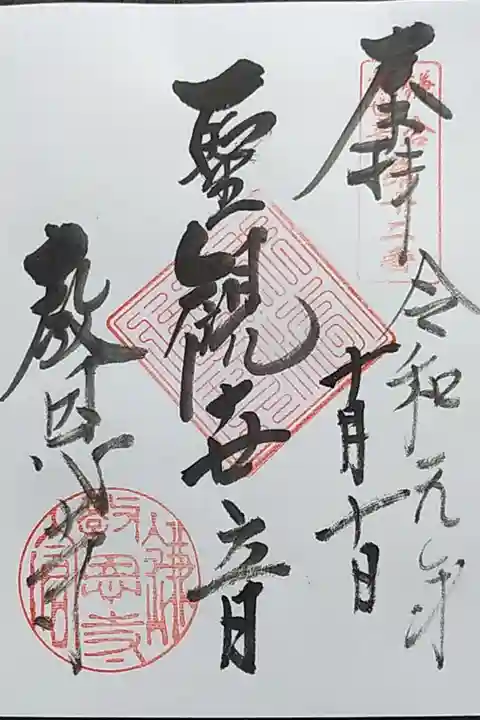 奉拝
令和元年
十月十日
聖観世音
教恩寺